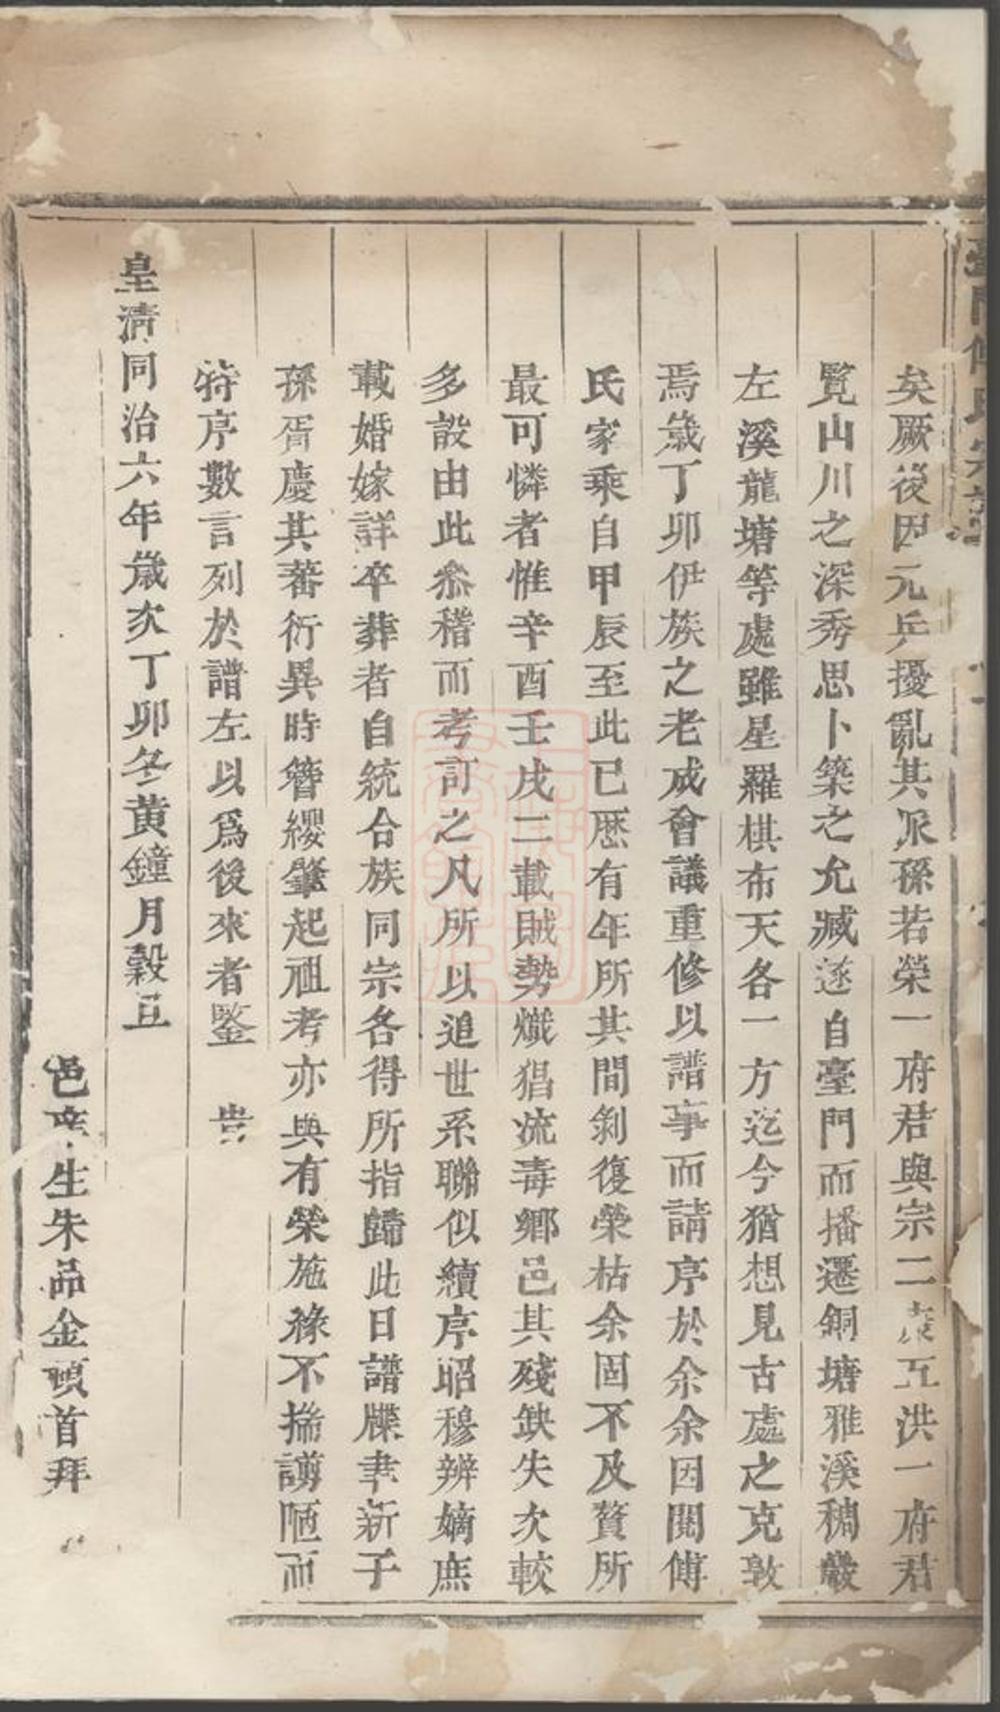 臺門傅氏宗譜
矣厥後因元兵擾亂其派孫若榮一府君與宗二 互洪一府君
覽山川之深秀思卜築之允臧遂自臺門而播遷銅塘雅溪稠巖
左溪龍塘等處雖星羅棋布天各一方迄今猶想見古處之克敦
焉歲丁卯伊族之老成會議重修以譜事而請序於余余因閱傅
氏家乘自甲辰至此已歷有年所其間剝復榮枯余固不及贅所
最可憐者惟辛酉壬戌二載賊勢熾猖流毒鄉邑其殘缺失次較
多設由此叅稽而考訂之凡所以追世系聯似續序昭穆辨嫡庶
載婚嫁詳卒葬者自統合族同宗各得所指歸此日譜牒聿新子
孫胥慶其蕃衍異時簪纓肇起祖考亦與有榮施緣不揣謭陋而
特序數言列於譜左以爲後來者鑒 旹
皇清同治六年歲次丁卯冬黃鐘月穀旦
邑庠生朱品金頓首拜